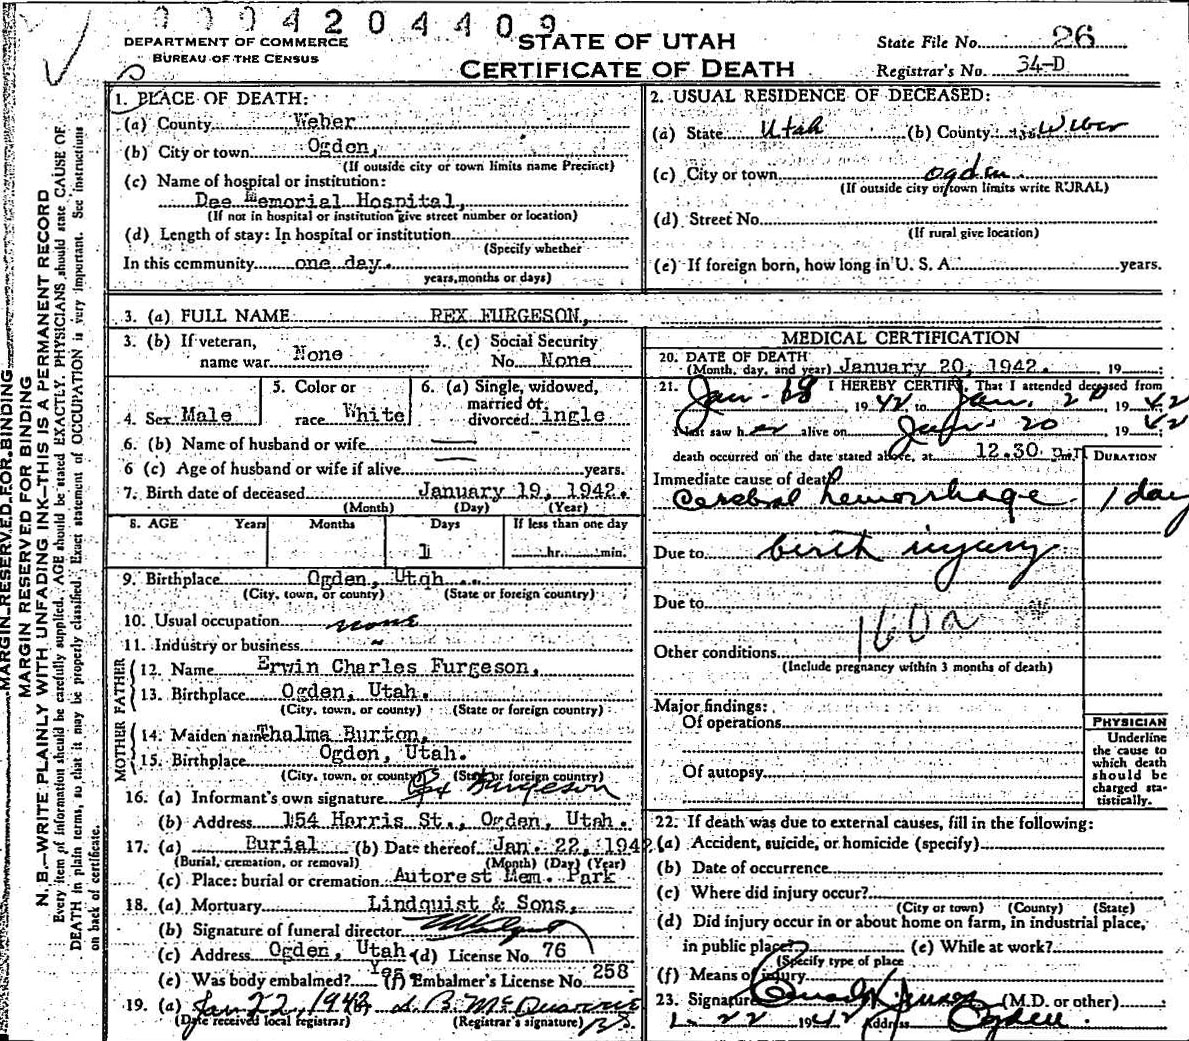 0004204409
DEPARTMENT OF COMMERCE
BUREAU OF THE CENSUS
STATE OF UTAH
CERTIFICATE OF DEATH
State File No. 26
Registrar's No. 34-D
MARGIN RESERVED FOR BINDING
MARGIN RESERVED FOR BINDING
N. B.—WRITE PLAINLY WITH UNFADING INK—THIS IS A PERMANENT RECORD
Every item of information should be carefully supplied. AGE should be stated EXACTLY. PHYSICIANS should state CAUSE OF
DEATH in plain terms, so that it may be properly classified. Exact statement of OCCUPATION is very important. See instructions
on back of certificate.
1. PLACE OF DEATH:
(a) County Weber
(b) City or town Ogden,
(If outside city or town limits name Precinct)
(c) Name of hospital or institution:
Dee Memorial Hospital,
(If not in hospital or institution give street number or location)
(d) Length of stay: In hospital or institution
(Specify whether
In this community one day.
years, months or days)
2. USUAL RESIDENCE OF DECEASED:
(a) State Utah (b) County Weber
(c) City or town Ogden
(If outside city or town limits write RURAL)
(d) Street No.
(If rural give location)
(e) If foreign born, how long in U. S. A. years.
3. (a) FULL NAME REX FURGESON,
3. (b) If veteran, name war None
3. (c) Social Security No. None
4. Sex Male
5. Color or race White
6. (a) Single, widowed, married or divorced ingle
6. (b) Name of husband or wife
6 (c) Age of husband or wife if alive years.
7. Birth date of deceased January 19, 1942.
(Month) (Day) (Year)
8. AGE Years Months Days If less than one day
1 hr. min.
9. Birthplace Ogden, Utah
(City, town, or county) (State or foreign country)
10. Usual occupation none
11. Industry or business "
FATHER
12. Name Erwin Charles Furgeson,
13. Birthplace Ogden, Utah.
(City, town, or county) (State or foreign country)
MOTHER
14. Maiden name Thalma Burton,
15. Birthplace Ogden, Utah.
(City, town, or county) (State or foreign country)
16. (a) Informant's own signature Furgeson
(b) Address 154 Harris St., Ogden, Utah.
17. (a) Burial (b) Date thereof Jan. 22, 1942
(Burial, cremation, or removal) (Month) (Day) (Year)
(c) Place: burial or cremation Autorest Mem. Park
18. (a) Mortuary Lindquist & Sons,
(b) Signature of funeral director
(c) Address Ogden, Utah (d) License No. 76
(e) Was body embalmed? Yes (f) Embalmer's License No. 258
19. (a) Jan 22, 1942
(Date received local registrar) (Registrar's signature)
MEDICAL CERTIFICATION
20. DATE OF DEATH
(Month, day, and year) January 20, 1942. 19
21. I HEREBY CERTIFY, That I attended deceased from
Jan. 1942 to Jan. 20, 1942
I last saw h er alive on Jan. 20 1942
death occurred on the date stated above, at 12.30 m.
DURATION
Immediate cause of death
Cerebral hemorrhage 1 day
Due to birth injury
Due to
160a
Other conditions
(Include pregnancy within 3 months of death)
Major findings:
Of operations
Of autopsy
PHYSICIAN
Underline
the cause to
which death
should be
charged sta-
tistically.
22. If death was due to external causes, fill in the following:
(a) Accident, suicide, or homicide (specify)
(b) Date of occurrence
(c) Where did injury occur?
(City or town) (County) (State)
(d) Did injury occur in or about home on farm, in industrial place,
in public place? (e) While at work?
(Specify type of place
(f) Means of injury
23. Signature (M.D. or other)
1-22 1942 Address Ogden.